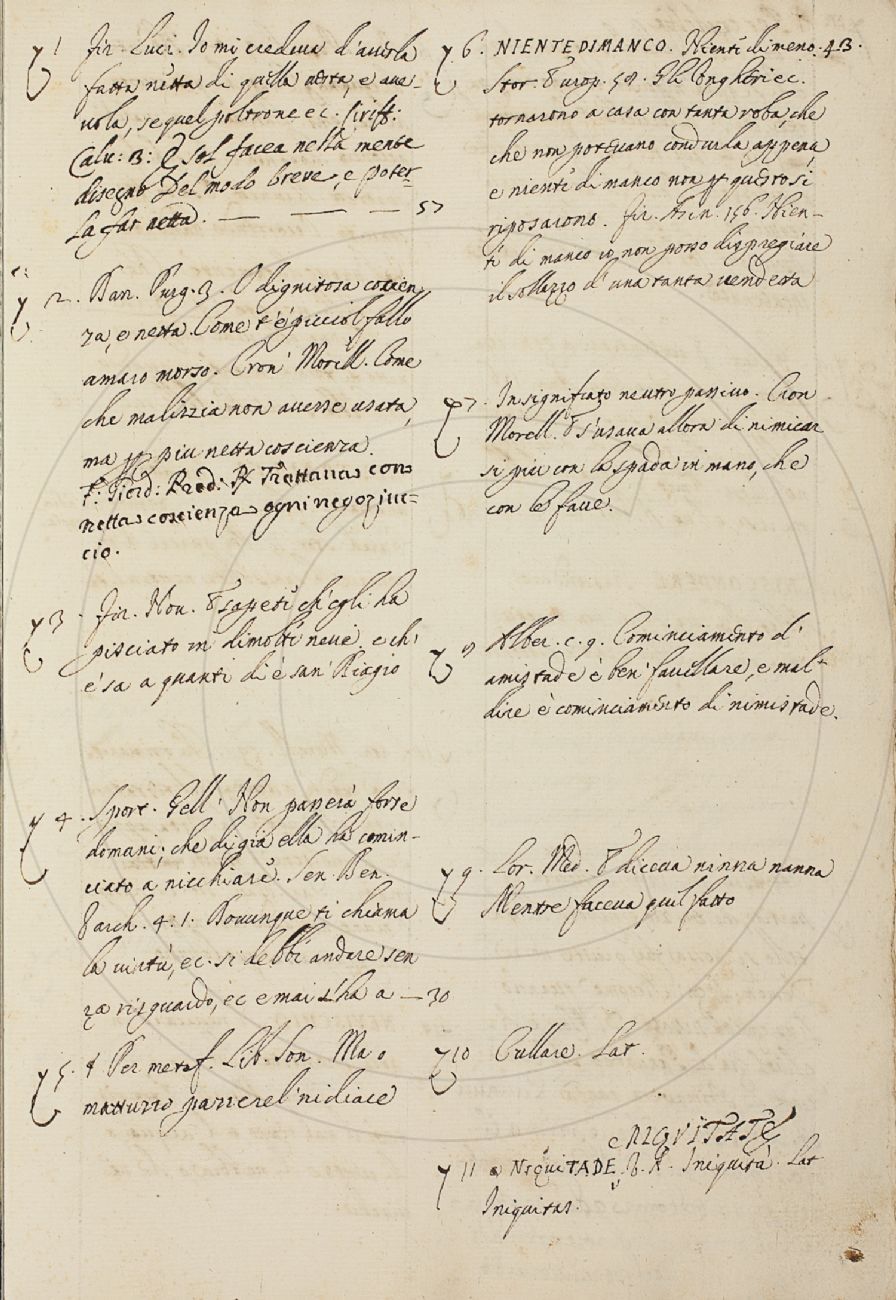 1 Fir. Luci. Io mi credeva d'averla
fatta netta di quella uesta, e aue-
uola, se quel poltrone ec. Ciriff:
Calu: 3: E sol facea nella mente
disegno Del modo breve, e poter-
la far netta. — — — 57
2. Dan. Purg. 3. O dignitosa coscien
za, e netta Come t'è picciol fallo
amaro morso. Cron. Morell. Come
che malizzia non auesse usata,
ma più netta coscienza.
F: Giord: Pred: R. Trattaua con
netta coscienza ogni negoziuc=
cio.
3. Fir. Nou. E sapete ch'egli ha
pisciato in dimolti neue, e ch'
e' sa a quanti dì è san Biagio
4. Sport. Gell. Non passerà forse
domani; che di già ella ha comin-
ciato a nicchiare. Sen. Ben.
Varch. 4. 1. Dounque ti chiama
la uirtù, ec. si debbe andare sen
za risguardo, ec e mai s'ha a — 30
5. Per metaf. Lib. Son. Ma o
mattuzzo passerel nidiace
6. NIENTEDIMANCO. Niente di meno. 43.
Stor. Europ. 59. Gli Ungheri ec.
tornarono a casa con tanta roba, che
che non poteuano condurla appena,
e niente di manco non per questo si
riposarono. Fir. Asin. 156. Nien-
te di manco io non posso dispregiare
il sollazzo d'una tanta uendetta
7. In significato neutro passiuo. Cron
Morell. E s'usaua allora di nimicar
si più con la spada in mano, che
con le faue.
8 Alber. c. 9. Cominciamento d'
amistade è ben fauellare, e mal-
dire è cominciamento di nimistade.
9. Lor. Med. E diceua ninna nanna
Mentre faceua quel fatto
10 Cullare. Lat.
NIQVITATE
11 a NIQUITADE, V. A. Iniquità. Lat
Iniquitas.